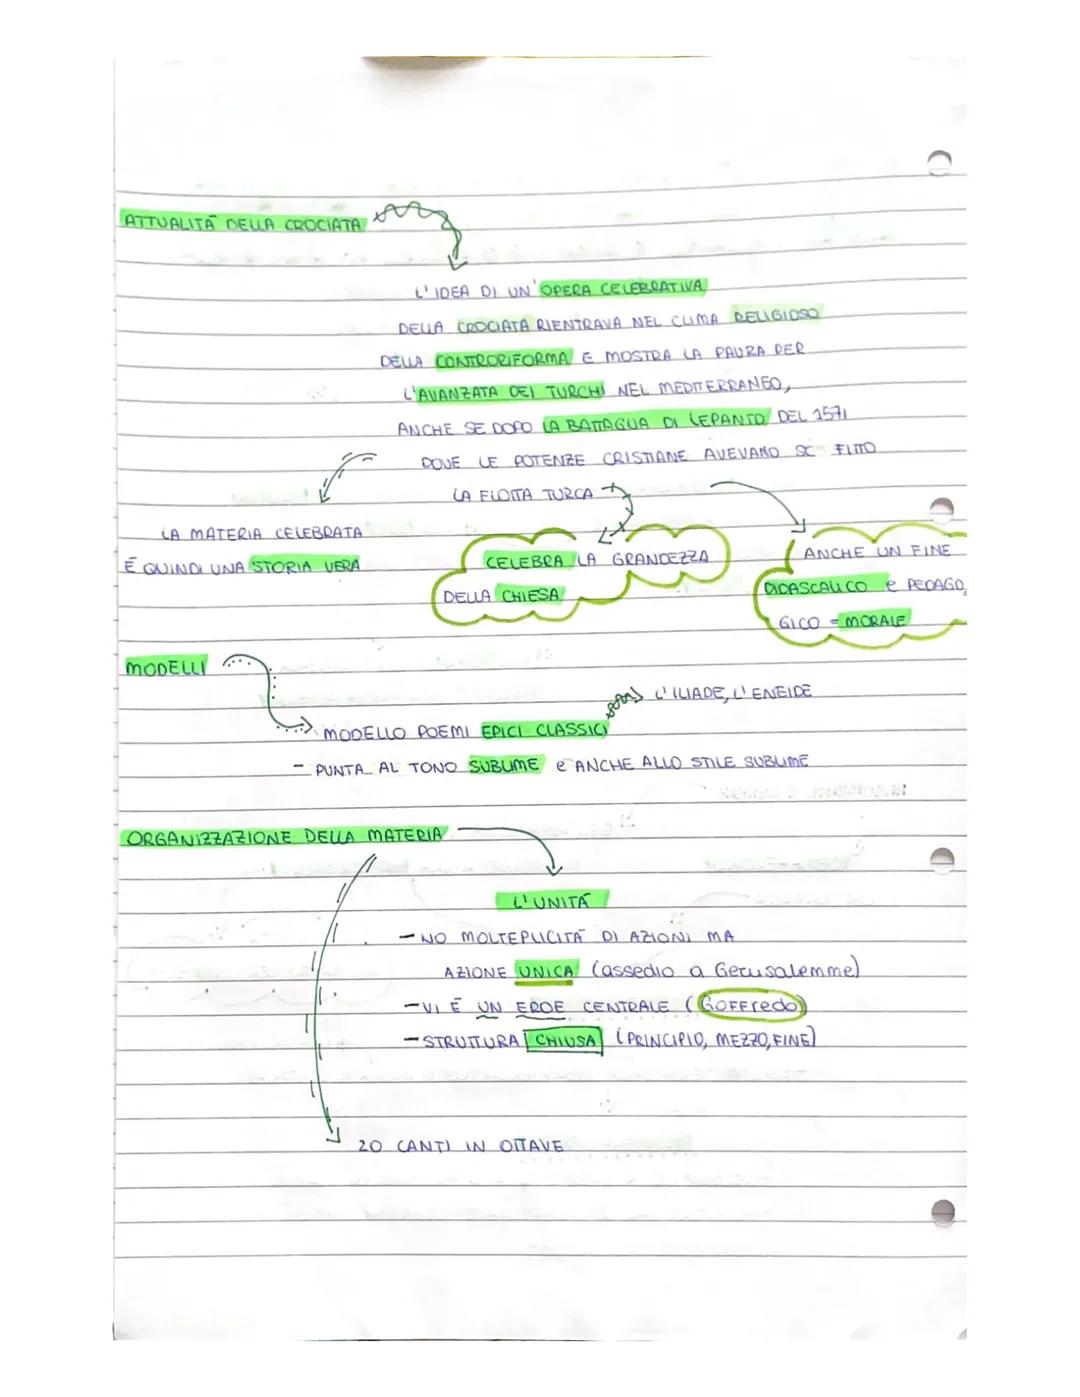 ATTUALITÀ DELLA CROCIATA
L'IDEA DI UN'OPERA CELEBRATIVA
DELLA CROCIATA RIENTRAVA NEL CLIMA RELIGIOSO
DELLA CONTRORIFORMA E MOSTRA LA PAURA PER
L'AVANZATA DEI TURCHI NEL MEDITERRANEO,
ANCHE SE DOPO LA BATTAGLIA DI LEPANTO DEL 1571
DOVE LE POTENZE CRISTIANE AVEVANO
LA FLOTTA TURCA
LA MATERIA CELEBRATA
È QUINDI UNA STORIA VERA
CELEBRA LA GRANDEZZA
DELLA CHIESA
ANCHE UN FINE
DIDASCALICO e PEDAGO
GICO = MORALE
MODELLI
L'ILIADE, L'ENEIDE
MODELLO POEMI EPICI CLASSICI
- PUNTA AL TONO SUBLIME e ANCHE ALLO STILE SUBLIME
ORGANIZZAZIONE DELLA MATERIA
L'UNITÀ
- NO MOLTEPLICITÀ DI AZIONI MA
AZIONE UNICA (assedio a Gerusalemme)
- VI È UN EROE CENTRALE (GOFFredo)
- STRUTTURA CHIUSA (PRINCIPIO, MEZZO, FINE)
20 CANTI IN OTTAVE